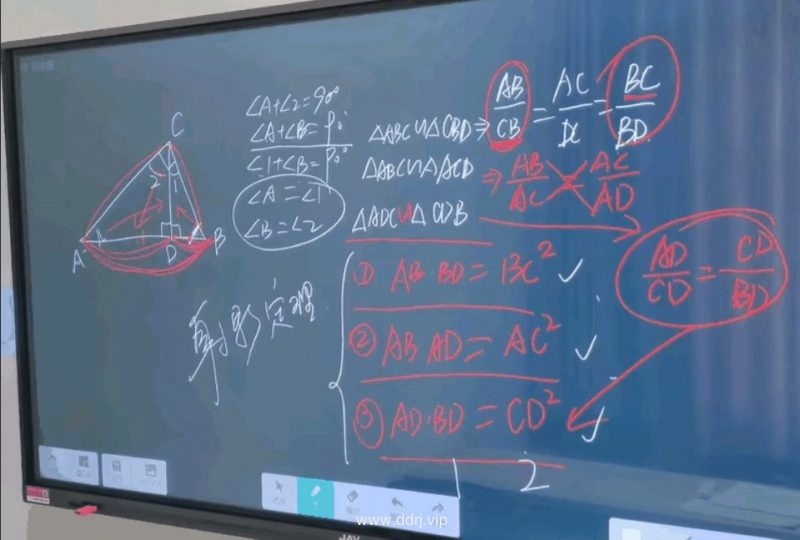 C
2 1
A D B
∠A+∠2=90°
∠A+∠B=90°
∠1+∠B=90°
∠A=∠1
∠B=∠2
△ABC∽△CBD⇒ AB/CB = AC/DC = BC/BD
△ABC∽△ACD ⇒ AB/AC = AC/AD
△ADC∽△CDB
AD/CD = CD/BD
射影定理
① AB·BD=BC² ✓
② AB AD=AC² ✓
③ AD·BD=CD² ✓
1 2
www.ddrj.vip